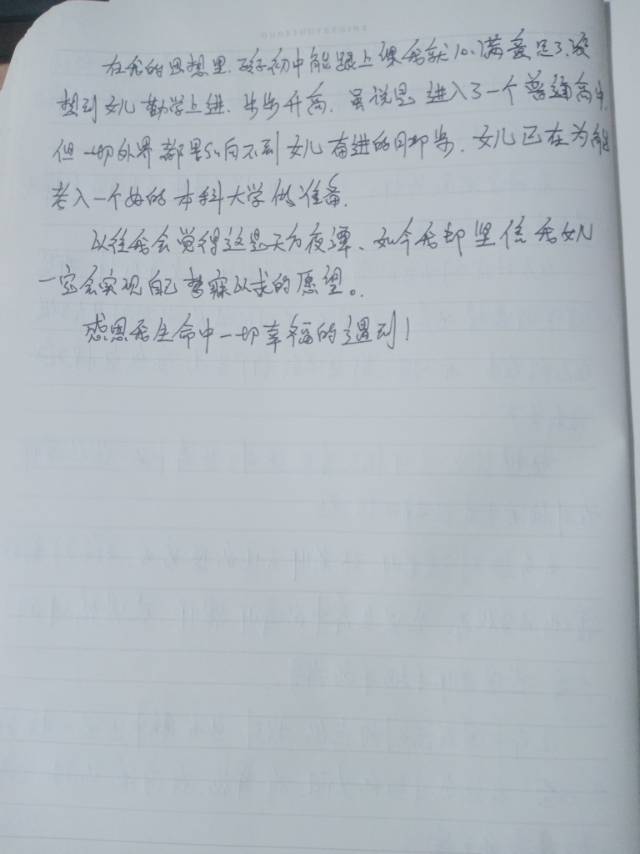 在我的思想里,孩子初中能跟上课我就心满意足了,没
想到女儿勤学上进,步步升高,虽说是进入了一个普通高中,
但一切外界都影响不到女儿奋进的脚步,女儿已在为能
考入一个好的本科大学做准备.
以往我会觉得这是天方夜谭、如今我却坚信我女儿
一定会实现自己梦寐以求的愿望。
感恩我生命中一切幸福的遇到!